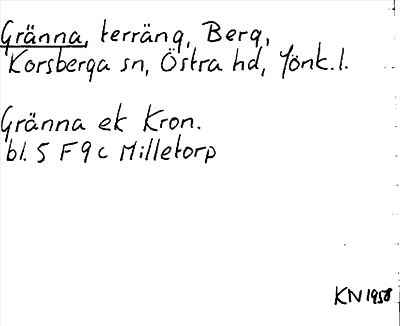 Gränna, terräng, Berg,
Korsberga sn, Östra hd, Jönk.l.
Gränna ek Kron.
bl. 5 F 9 c Milletorp
KN 1958